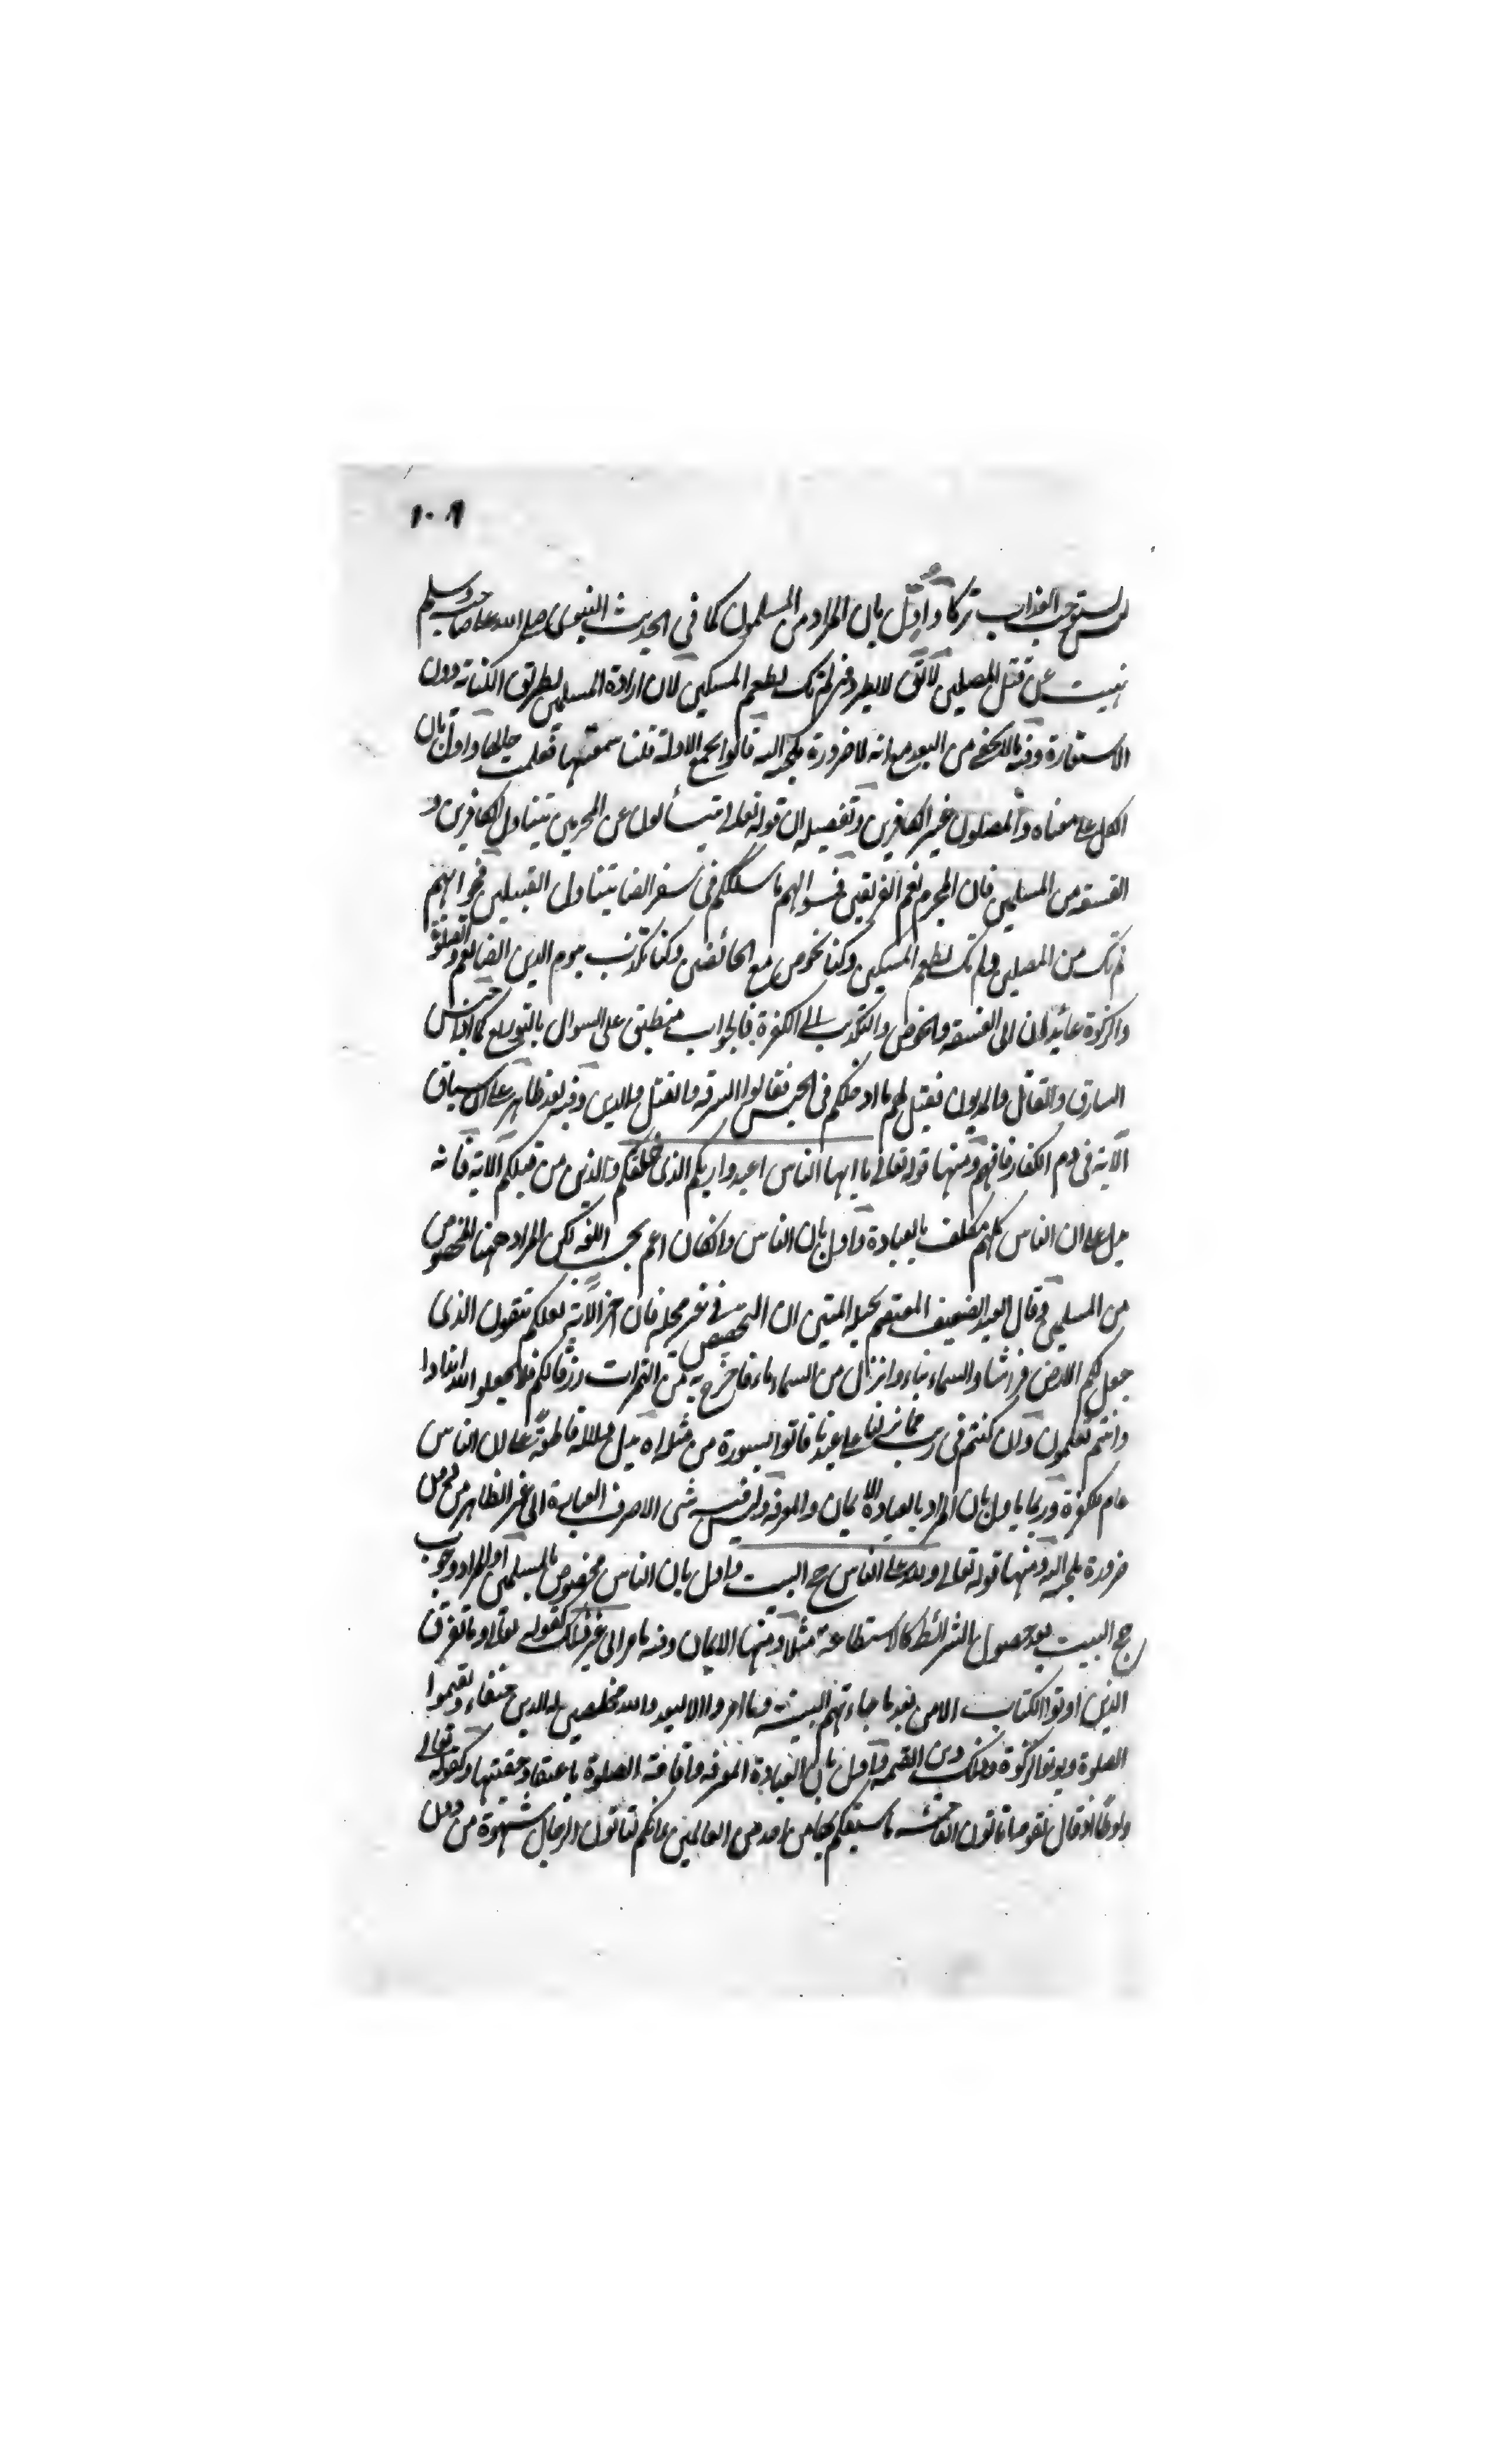 ١٠٩
لمستوجب العذاب تركا واول بان المراد من المسلمون كما في الحديث النبوي صلى الله على صاحبه وسلم
نهيت عن قتل المصلين لا يطرد في لم نك نطعم المسكين لان ارادة المسلمين بطريق الكناية دون
الاستعارة وفيه مالا يخفى من البعد مع انه لا ضرورة ملجئة اليه قالوا بجمع الادلة قلنا سمعتها فعلمت حالها واول بان
الكل على معناه والمصلون غير الكافرين وتفصيله ان قوله تعالى يتسألون عن المجرمين يتناول الكافرين و
الفسقة من المسلمين فان المجرم نعم الفريقين فسوالهم ما سلككم في سقر ايضا يتناول القبيلين فجوابهم
لم نك من المصلين ولم نك نطعم المسكين وكنا نخوض مع الخائضين وكنا نكذب بيوم الدين ايضا نعم والصلوة
والزكوة عائدان الى الفسقة والخوض والتكذيب الى الكفرة فالجواب منطبق على السوال بالتوزيع كما اذا حبس
السارق والقاتل والمديون فقيل لهم ما ادخلكم في الحبس فقالوا السرقة والقتل والدين وفيه بعد ظاهر على ان سياق
الآية في ذم الكفار فافهم ومنها قوله تعالى يا ايها الناس اعبدوا ربكم الذي خلقكم والذين من قبلكم الآية فانه
يدل على ان الناس كلهم مكلف بالعبادة واول بان الناس وان كان اعم بحسب اللغة لكن المراد ههنا المخصوص
من المسلمين وقال العبد الضعيف المعتصم بحبله المتين ان التخصيص في غير محله فان آخر الآية لعلكم تتقون الذي
جعل لكم الارض فراشا والسماء بناء وانزل من السماء ماء فاخرج به من الثمرات رزقا لكم فلا تجعلوا لله اندادا
وانتم تعلمون وان كنتم في ريب مما نزلنا على عبدنا فاتوا بسورة من مثله اه يدل دلالة قاطعة على ان الناس
عام للكفرة وربما ياول بان المراد بالعبادة الايمان والمعرفة وليس فيه شى الا صرف العبادة الى غير الظاهر من دون
ضرورة ملجئة اليه ومنها قوله تعالى ولله على الناس حج البيت واول بان الناس مخصوص بالمسلمين او المراد وجوب
حج البيت بعد حصول الشرائط كالاستطاعة مثلا ومنها الايمان وفيه ما مر الى غير ذلك كقوله تعالى وما تفرق
الذين اوتوا الكتاب الا من بعد ما جاءتهم البينة وما امروا الا ليعبدوا الله مخلصين له الدين حنفاء ويقيموا
الصلوة ويوتوا الزكوة وذلك دين القيمة واول بان العبادة المعرفة واقامة الصلوة باعتقاد حقيتها وكقوله تعالى
ولوطا اذ قال لقومه اتاتون الفاحشة ما سبقكم بها من احد من العالمين انكم لتاتون الرجال شهوة من دون